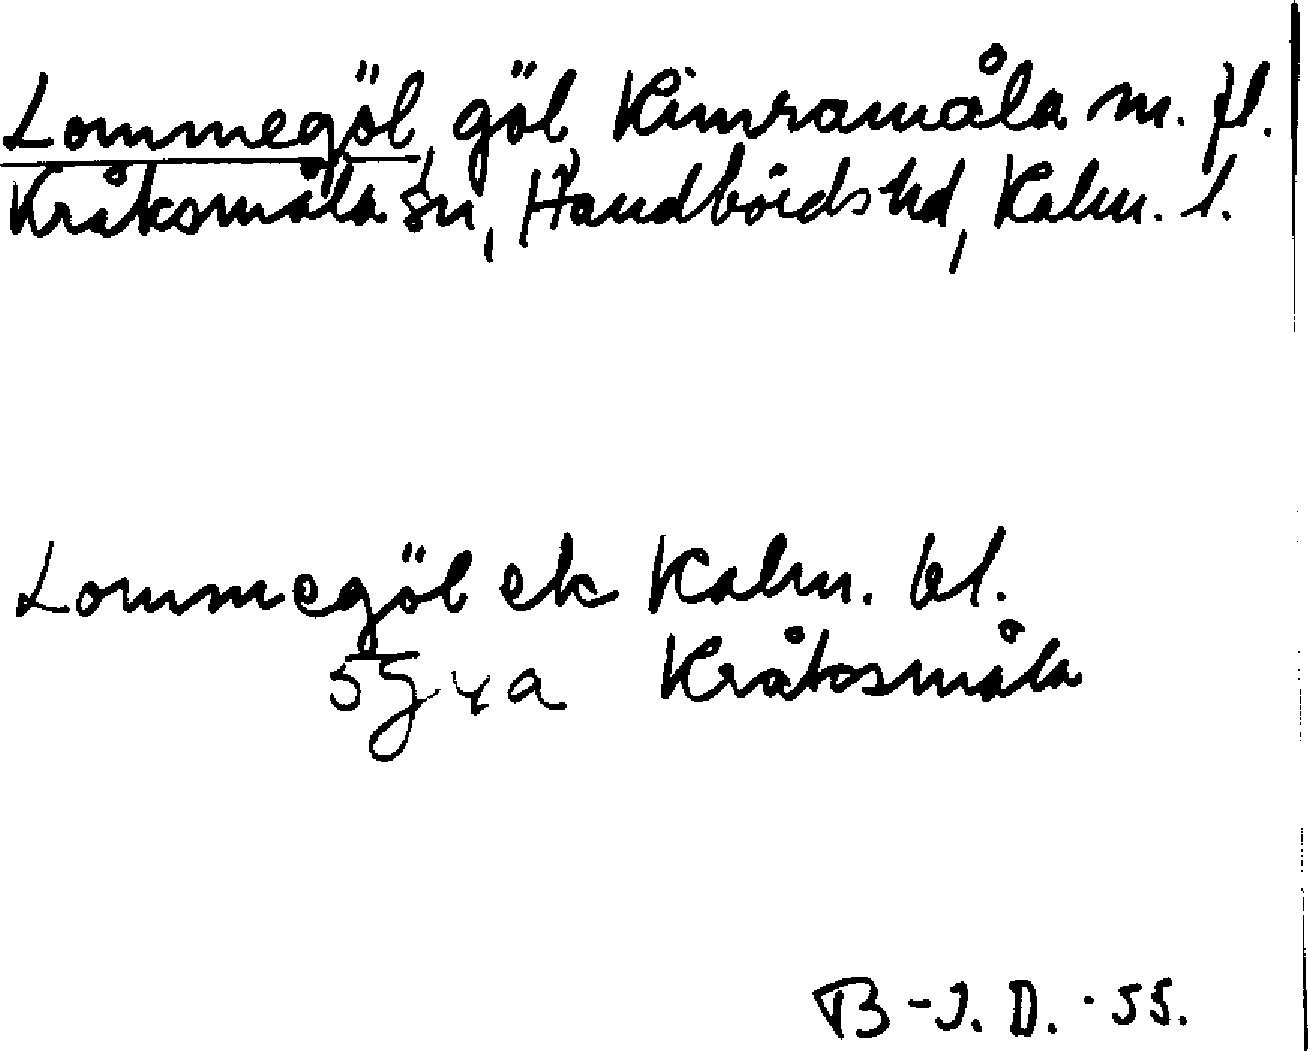 Lommegöl, göl, Kimramåla m. fl.
Kråksmåla sn, Handbörds hd, Kalm. l.
Lommegöl ek Kalm. bl.
5G4a Kråksmåla
B-J. D. -55.